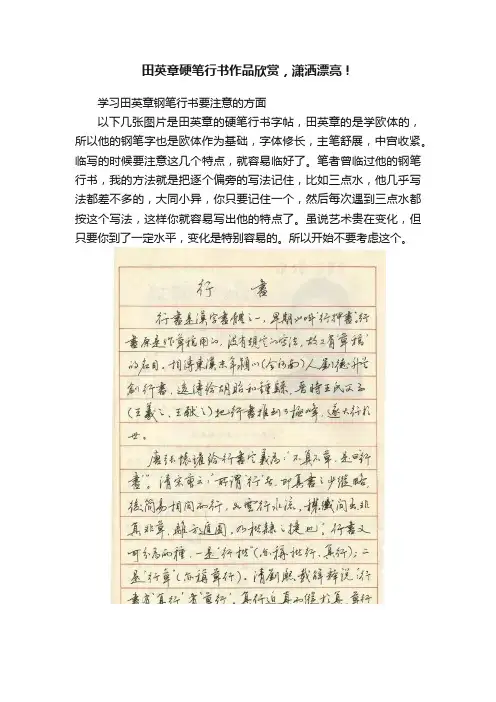 田英章硬笔行书作品欣赏，潇洒漂亮！
学习田英章钢笔行书要注意的方面
以下几张图片是田英章的硬笔行书字帖，田英章的是学欧体的，
所以他的钢笔字也是欧体作为基础，字体修长，主笔舒展，中宫收紧。
临写的时候要注意这几个特点，就容易临好了。笔者曾临过他的钢笔
行书，我的方法就是把逐个偏旁的写法记住，比如三点水，他几乎写
法都差不多的，大同小异，你只要记住一个，然后每次遇到三点水都
按这个写法，这样你就容易写出他的特点了。虽说艺术贵在变化，但
只要你到了一定水平，变化是特别容易的。所以开始不要考虑这个。
行 書
行書是漢字書體之一，早期也叫“行押書”。行
書原是作草稿用的，没有規定的寫法，故又有“草稿”
的名目。相傳東漢末年潁川(今河南)人劉德升首
創行書，遂傳給胡昭和鍾繇，晋時王氏父子
(王羲之、王献之)把行書推到了極峰，遂大行於
世。
唐張懷瓘給行書定義爲：“不真不草，是曰行
書”。清宋曹云：“所謂行者，即真書之少縱略，
後簡易相間而行，如雲行水流，穠纖間出，非
真非草，離方遁圓，乃楷隸之捷也。”行書又
可分爲兩種，一是“行楷”(亦稱楷行、真行)；二
是“行草”(亦稱草行)。清劉熙載解釋説“行
書有‘真行’有‘草行’，真行近真而縱於真，草行